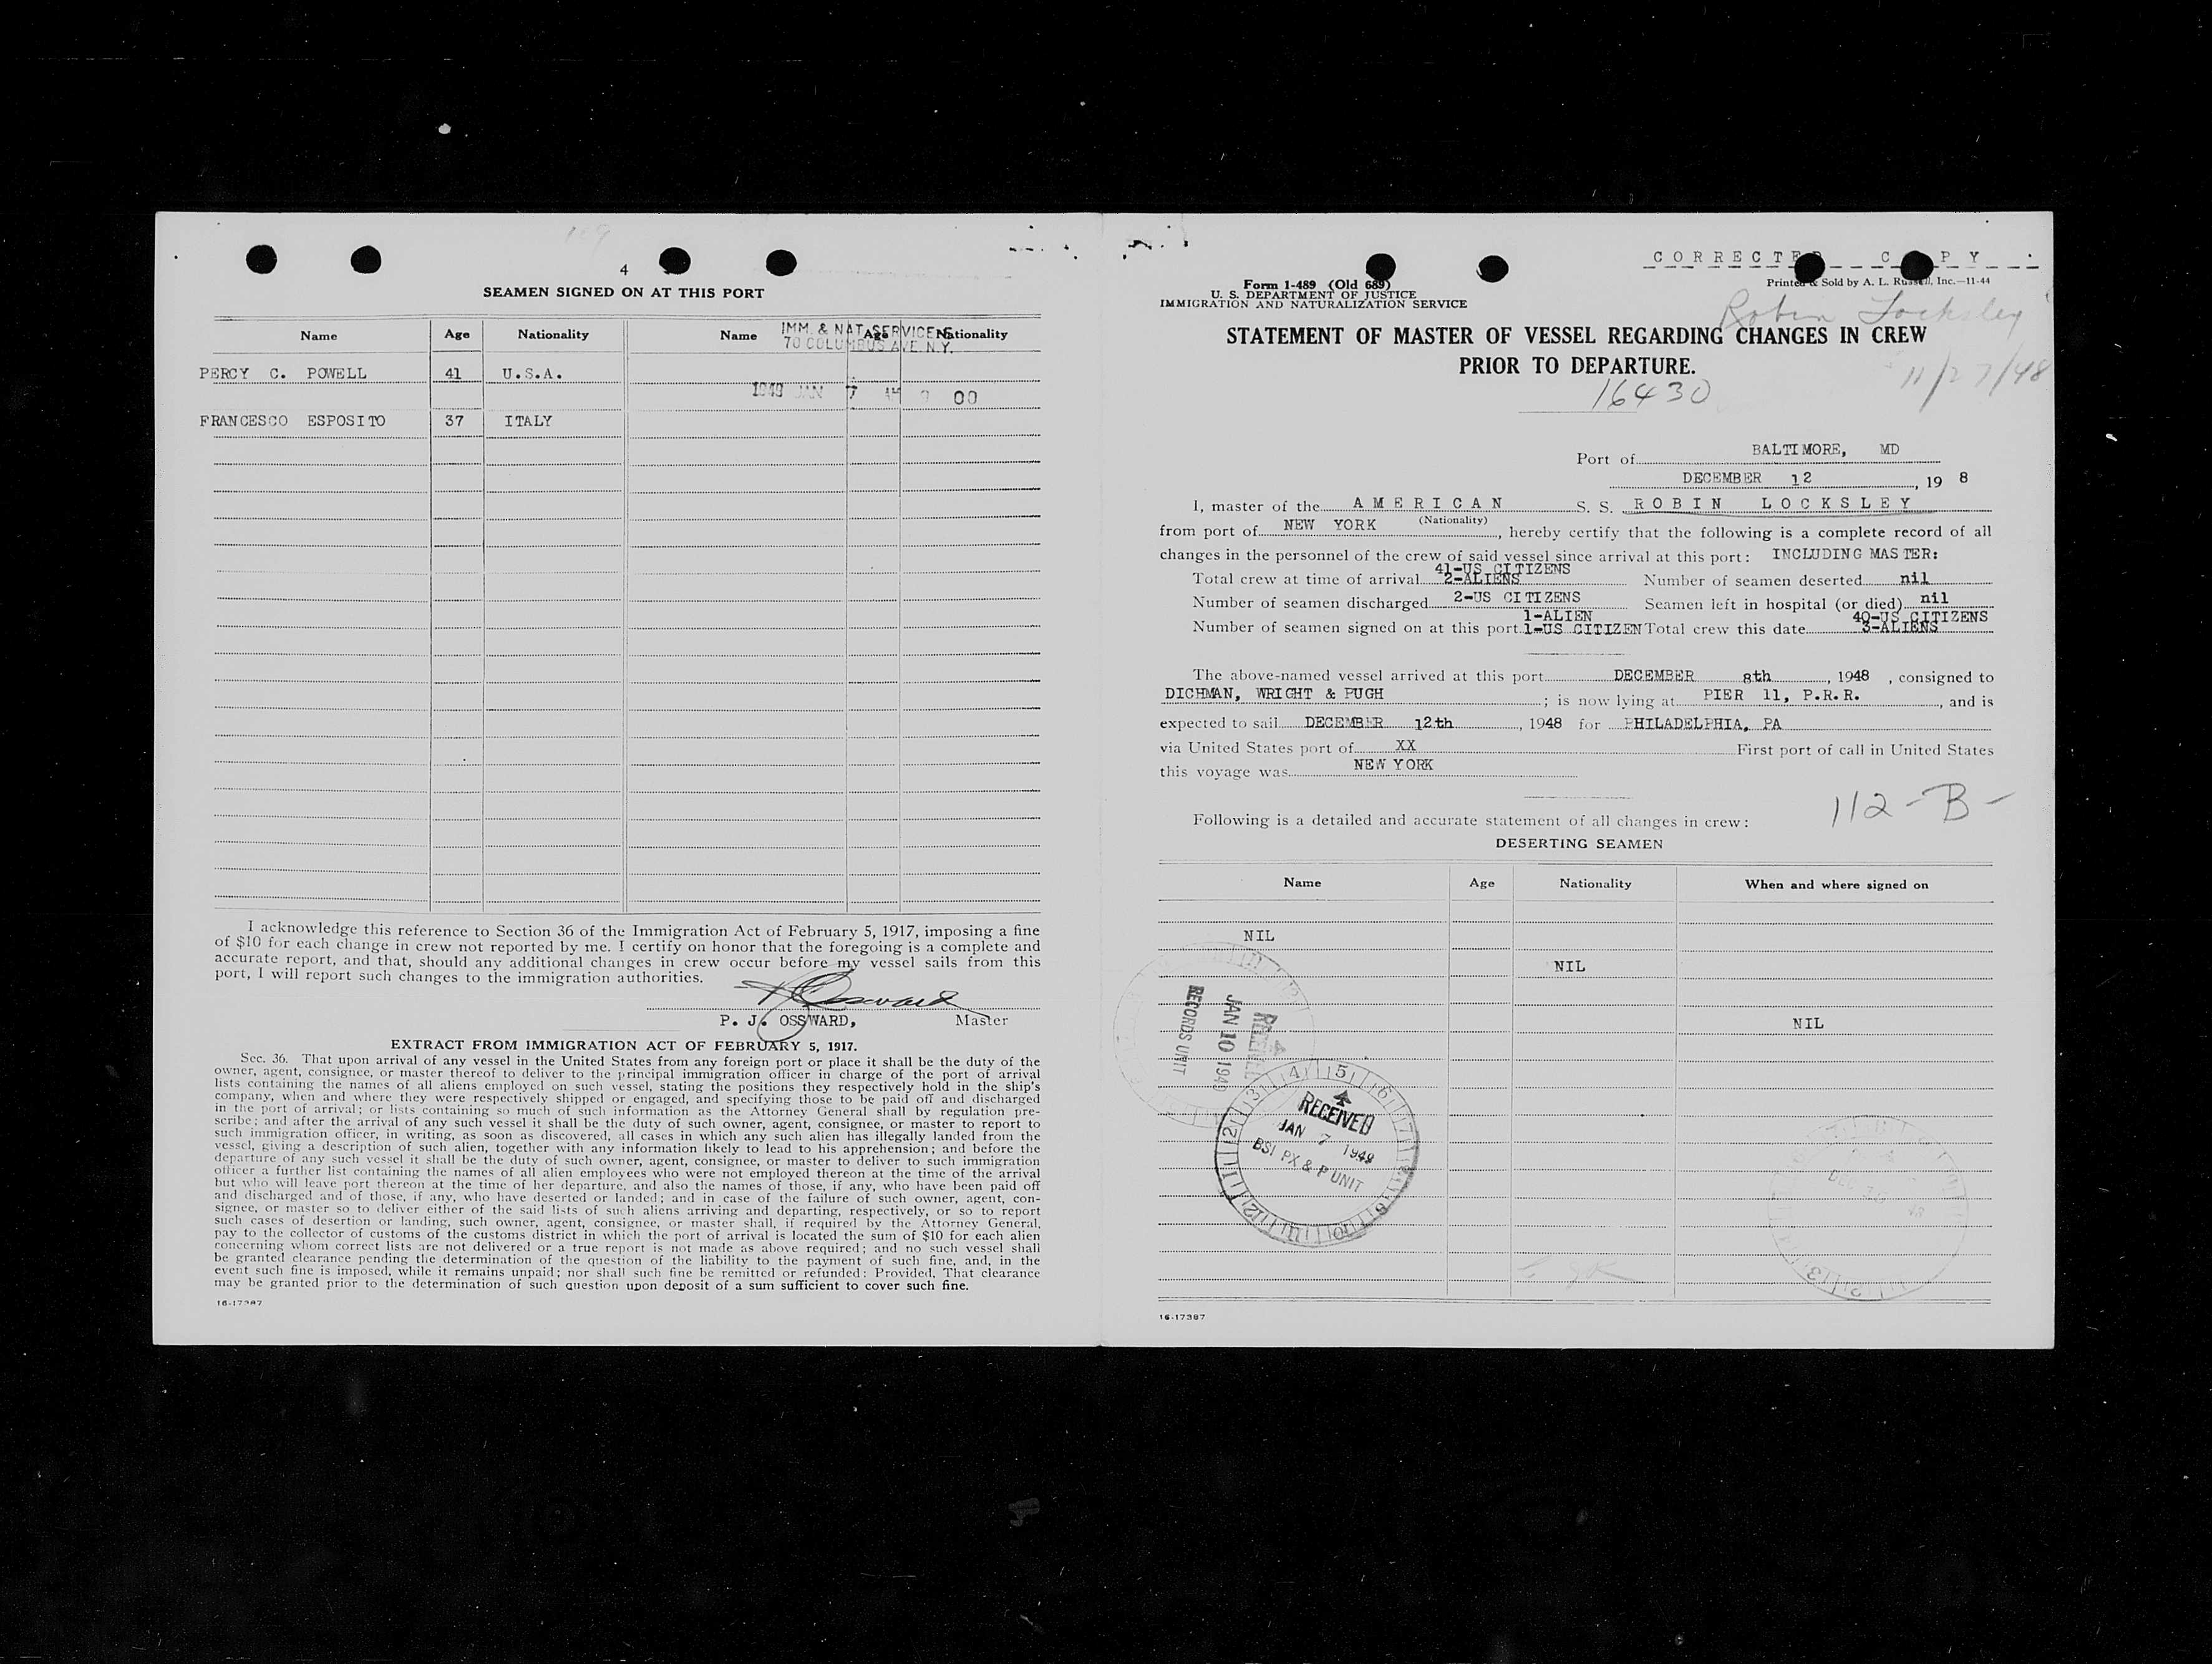 4
SEAMEN SIGNED ON AT THIS PORT
Name Age Nationality Name Age Nationality
IMM. & NAT. SERVICE
70 COLUMBUS AVE. N.Y.
PERCY C. POWELL 41 U.S.A.
1949 JAN 7 AM 9 00
FRANCESCO ESPOSITO 37 ITALY
I acknowledge this reference to Section 36 of the Immigration Act of February 5, 1917, imposing a fine
of $10 for each change in crew not reported by me. I certify on honor that the foregoing is a complete and
accurate report, and that, should any additional changes in crew occur before my vessel sails from this
port, I will report such changes to the immigration authorities.
P. J. OSSWARD, Master
EXTRACT FROM IMMIGRATION ACT OF FEBRUARY 5, 1917.
Sec. 36. That upon arrival of any vessel in the United States from any foreign port or place it shall be the duty of the
owner, agent, consignee, or master thereof to deliver to the principal immigration officer in charge of the port of arrival
lists containing the names of all aliens employed on such vessel, stating the positions they respectively hold in the ship's
company, when and where they were respectively shipped or engaged, and specifying those to be paid off and discharged
in the port of arrival; or lists containing so much of such information as the Attorney General shall by regulation pre-
scribe; and after the arrival of any such vessel it shall be the duty of such owner, agent, consignee, or master to report to
such immigration officer, in writing, as soon as discovered, all cases in which any such alien has illegally landed from the
vessel, giving a description of such alien, together with any information likely to lead to his apprehension; and before the
departure of any such vessel it shall be the duty of such owner, agent, consignee, or master to deliver to such immigration
officer a further list containing the names of all alien employees who were not employed thereon at the time of the arrival
but who will leave port thereon at the time of her departure, and also the names of those, if any, who have been paid off
and discharged and of those, if any, who have deserted or landed; and in case of the failure of such owner, agent, con-
signee, or master so to deliver either of the said lists of such aliens arriving and departing, respectively, or so to report
such cases of desertion or landing, such owner, agent, consignee, or master shall, if required by the Attorney General,
pay to the collector of customs of the customs district in which the port of arrival is located the sum of $10 for each alien
concerning whom correct lists are not delivered or a true report is not made as above required; and no such vessel shall
be granted clearance pending the determination of the question of the liability to the payment of such fine, and, in the
event such fine is imposed, while it remains unpaid; nor shall such fine be remitted or refunded: Provided, That clearance
may be granted prior to the determination of such question upon deposit of a sum sufficient to cover such fine.
16-17387
CORRECTED COPY
Form 1-489 (Old 689)
U. S. DEPARTMENT OF JUSTICE
IMMIGRATION AND NATURALIZATION SERVICE
Printed & Sold by A. L. Russell, Inc.—11-44
Robin Locksley
STATEMENT OF MASTER OF VESSEL REGARDING CHANGES IN CREW
PRIOR TO DEPARTURE.
11/27/48
16430
Port of BALTIMORE, MD
DECEMBER 12, 19 8
I, master of the AMERICAN S. S. ROBIN LOCKSLEY
(Nationality)
from port of NEW YORK, hereby certify that the following is a complete record of all
changes in the personnel of the crew of said vessel since arrival at this port: INCLUDING MASTER:
Total crew at time of arrival 41-US CITIZENS 2-ALIENS Number of seamen deserted nil
Number of seamen discharged 2-US CITIZENS Seamen left in hospital (or died) nil
Number of seamen signed on at this port 1-ALIEN 1-US CITIZEN Total crew this date 40-US CITIZENS 3-ALIENS
The above-named vessel arrived at this port DECEMBER 8th, 1948, consigned to
DICHMAN, WRIGHT & PUGH; is now lying at PIER 11, P.R.R., and is
expected to sail DECEMBER 12th, 1948 for PHILADELPHIA, PA
via United States port of XX First port of call in United States
this voyage was NEW YORK
112-B-
Following is a detailed and accurate statement of all changes in crew:
DESERTING SEAMEN
Name Age Nationality When and where signed on
NIL
NIL
NIL
RECEIVED
JAN 10 1949
RECORDS UNIT
RECEIVED
JAN 7 1949
BSI PX & P UNIT
16-17387